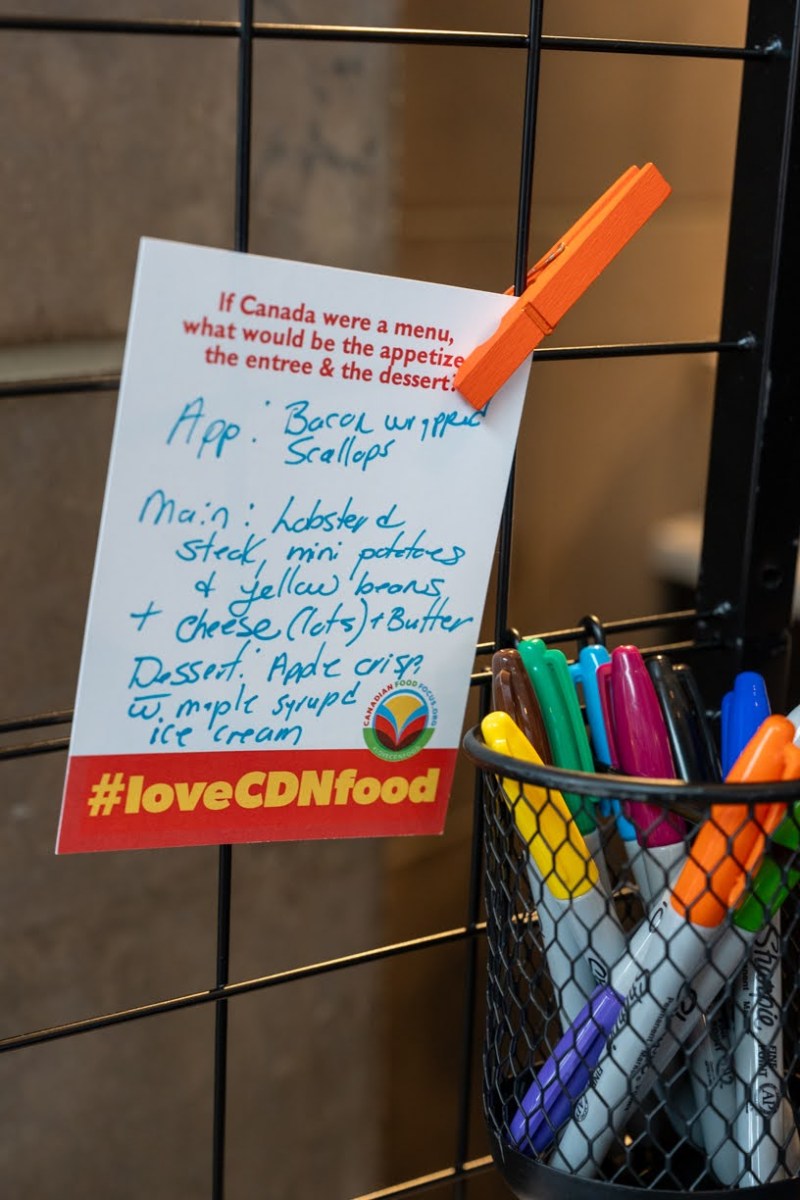 If Canada were a menu,
what would be the appetize
the entree & the dessert?
App: Bacon wrapped
Scallops
Main: Lobster &
steak, mini potatoes
& yellow beans
+ cheese (lots) + Butter
Dessert: Apple crisp
w maple syrup &
ice cream
CANADIAN FOOD FOCUS.ORG
#loveCDNfood
Sharpie